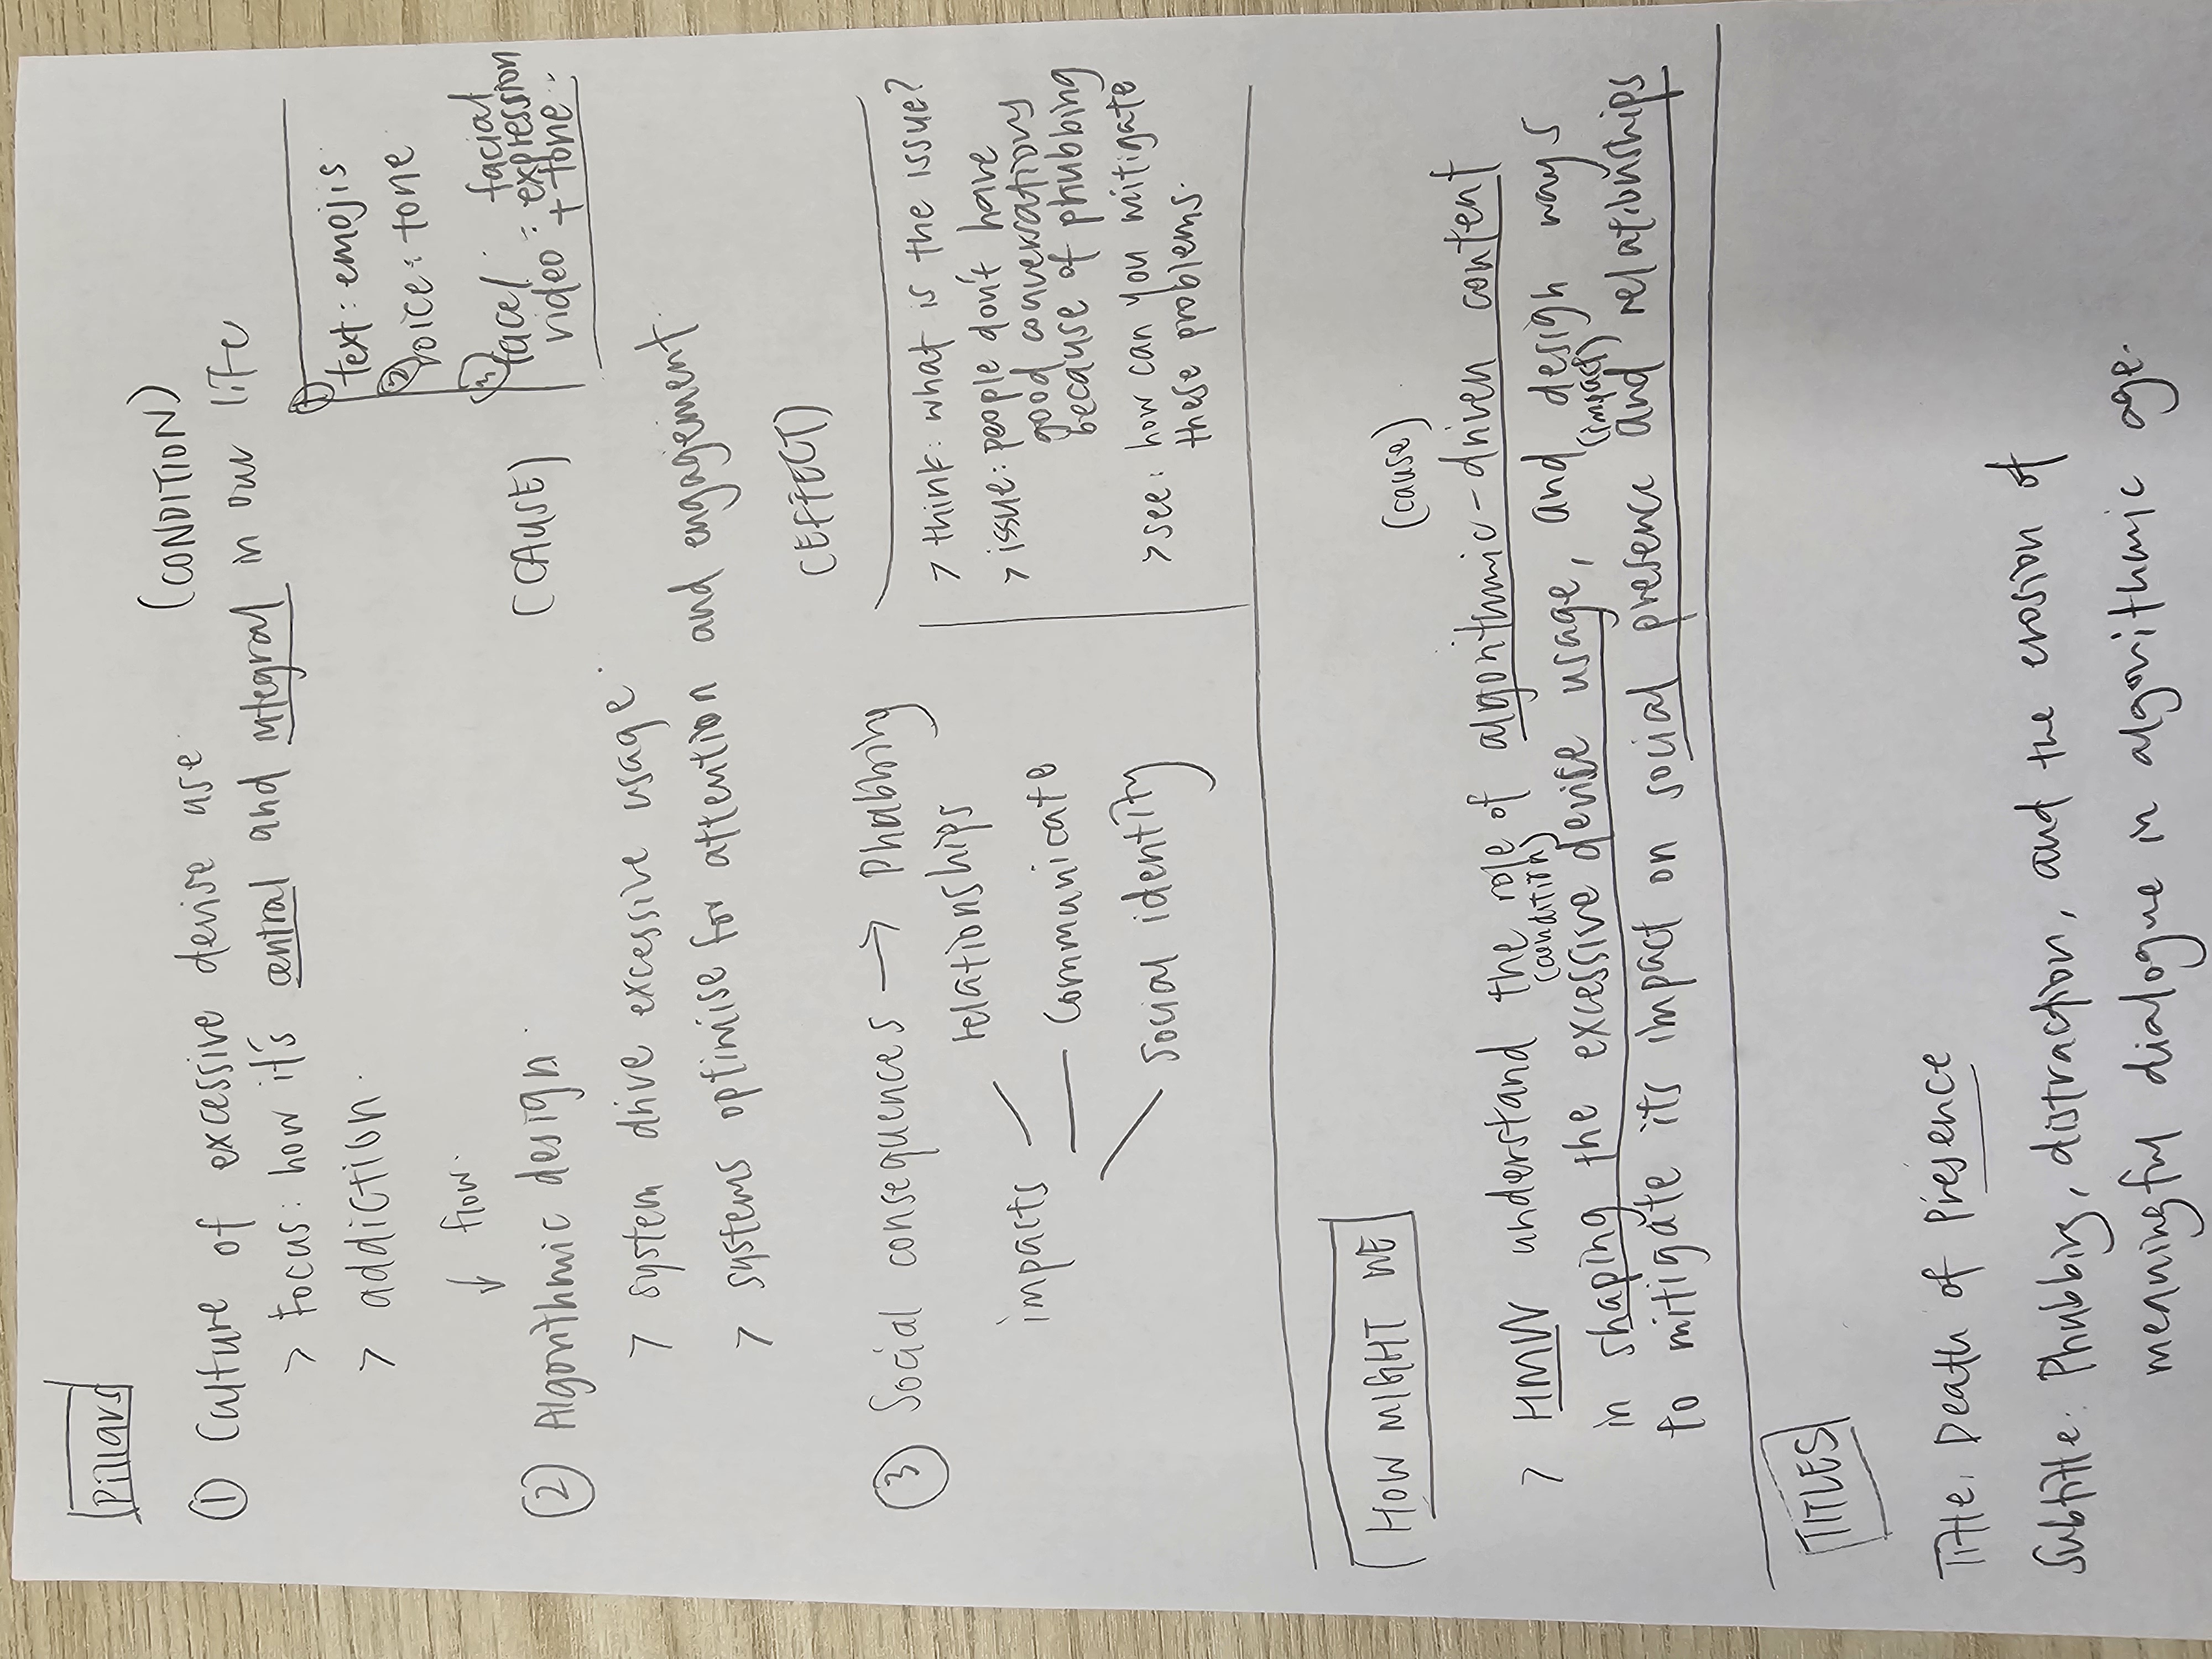 Pillars
① Culture of excessive devise use. (CONDITION)
> Focus: how it's central and integral in our life
> addiction.
① Text: emojis
② Voice: tone
③ face/ : facial
video : expression
+ tone..
↓ flow.
② Algorithmic design. (CAUSE)
> system drive excessive usage.
> systems optimise for attention and engagement.
③ Social consequences → Phubbing (EFFECT)
impacts
relationships
communicate
social identity
> think: what is the issue?
> issue: people don't have
good conversations
because of phubbing
> see: how can you mitigate
these problems.
HOW MIGHT WE
(cause)
> HMW understand the role of algorithmic-driven content
(condition)
in shaping the excessive devise usage, and design ways
(impact)
to mitigate its impact on social presence and relationships
TITLES
Title: Death of Presence
Subtitle: Phubbing, distraction, and the erosion of
meaningful dialogue in algorithmic age.